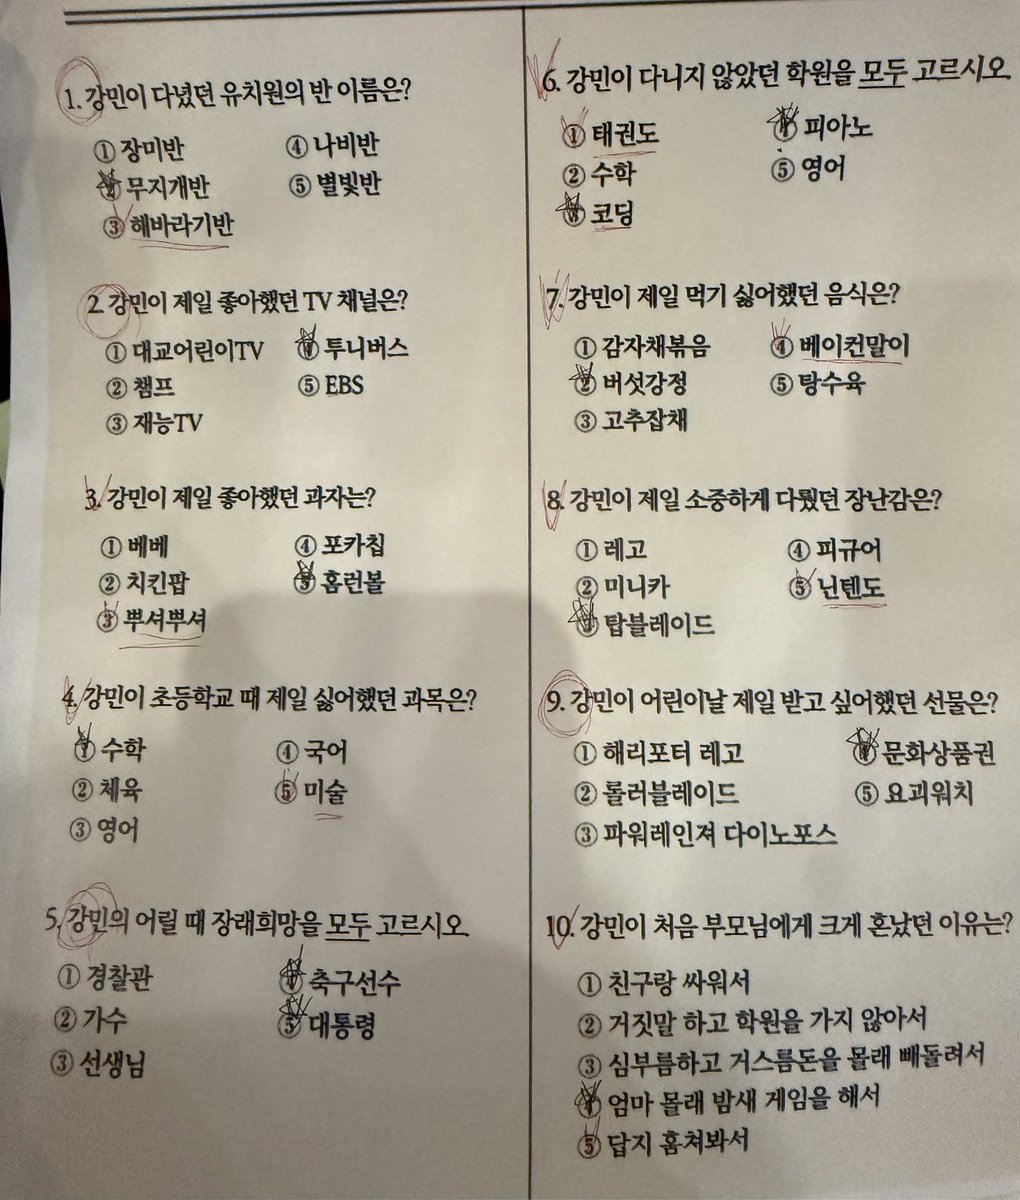 1. 강민이 다녔던 유치원의 반 이름은?
① 장미반 ④ 나비반
② 무지개반 ⑤ 별빛반
③ 해바라기반
2. 강민이 제일 좋아했던 TV 채널은?
① 대교어린이TV ④ 투니버스
② 챔프 ⑤ EBS
③ 재능TV
3. 강민이 제일 좋아했던 과자는?
① 베베 ④ 포카칩
② 치킨팝 ⑤ 홈런볼
③ 뿌셔뿌셔
4. 강민이 초등학교 때 제일 싫어했던 과목은?
① 수학 ④ 국어
② 체육 ⑤ 미술
③ 영어
5. 강민의 어릴 때 장래희망을 모두 고르시오
① 경찰관 ④ 축구선수
② 가수 ⑤ 대통령
③ 선생님
6. 강민이 다니지 않았던 학원을 모두 고르시오
① 태권도 ④ 피아노
② 수학 ⑤ 영어
③ 코딩
7. 강민이 제일 먹기 싫어했던 음식은?
① 감자채볶음 ④ 베이컨말이
② 버섯강정 ⑤ 탕수육
③ 고추잡채
8. 강민이 제일 소중하게 다뤘던 장난감은?
① 레고 ④ 피규어
② 미니카 ⑤ 닌텐도
③ 탑블레이드
9. 강민이 어린이날 제일 받고 싶어했던 선물은?
① 해리포터 레고 ④ 문화상품권
② 롤러블레이드 ⑤ 요괴워치
③ 파워레인져 다이노포스
10. 강민이 처음 부모님에게 크게 혼났던 이유는?
① 친구랑 싸워서
② 거짓말 하고 학원을 가지 않아서
③ 심부름하고 거스름돈을 몰래 빼돌려서
④ 엄마 몰래 밤새 게임을 해서
⑤ 답지 훔쳐봐서